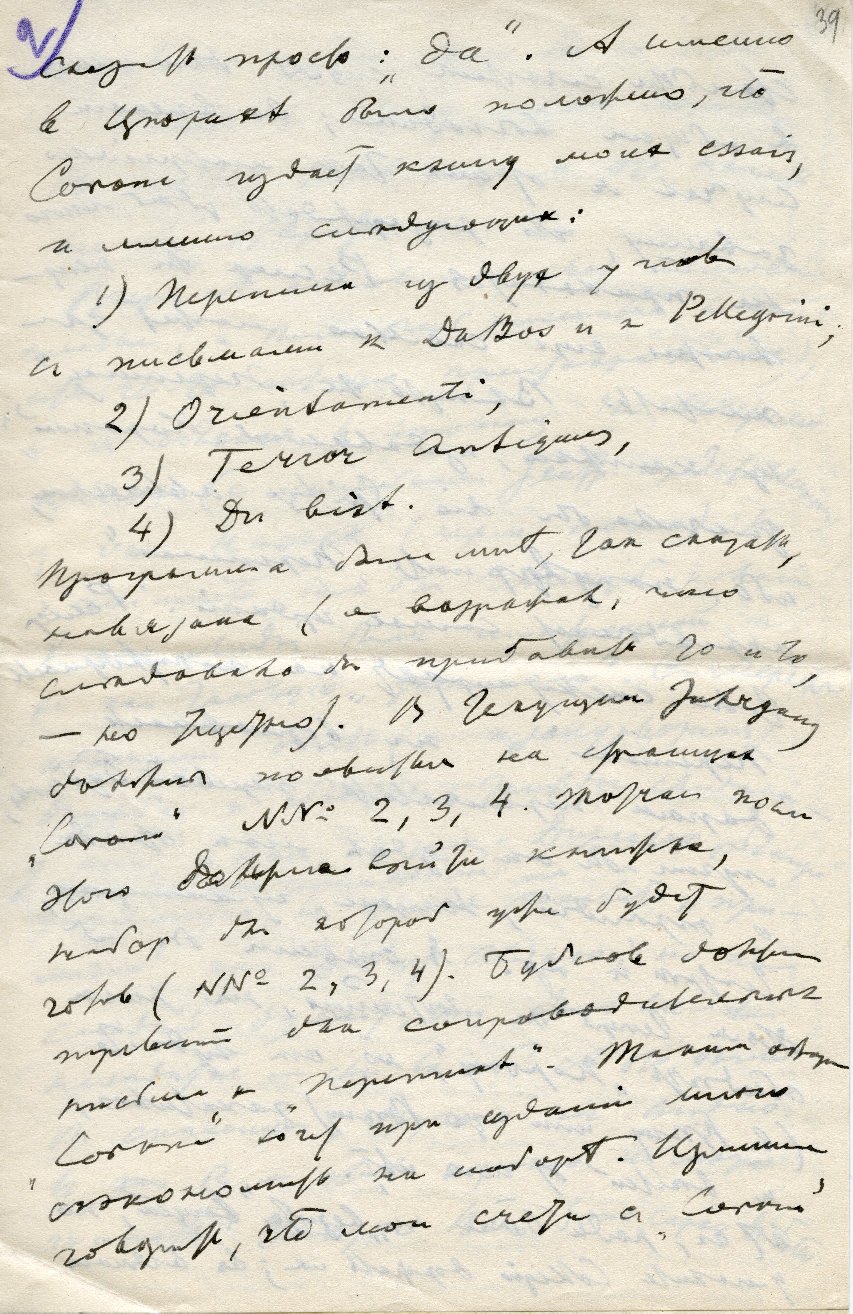 39
2)
сказать просто: „да“. А именно
в Цюрихѣ было положено, что
Corona издаетъ книгу моих essais,
и именно слѣдующих:
1) Переписка из двух углов
съ письмами к DuBos и к Pellegrini;
2) Orientamenti,
3) Terror Antiquus,
4) Du bist.
Программа была мнѣ, так сказать,
навязана (я возражал, что
слѣдовало бы прибавить то и то,
— но тщетно). В текущем Jahrgang
должны появиться на страницах
„Corona“ NNº 2, 3, 4. Тотчас послѣ
этого должна выйти книжка,
набор для которой уже будет
готов (NNº 2, 3, 4). Бубнов должен
перевести два сопроводительных
письма к „Переписке“. Таким образ
„Corona“ хочет при изданiи много
сэкономить на наборѣ. Излишне
говорить, что мои счеты с „Corona“